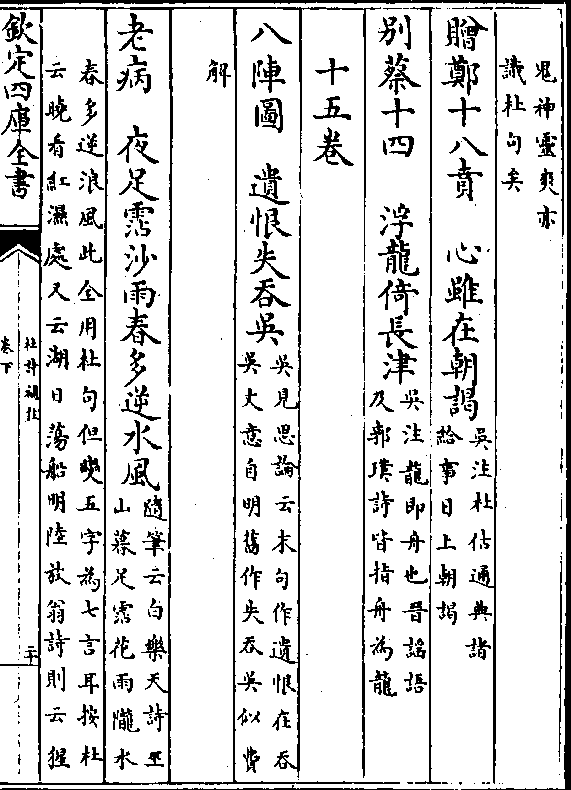 鬼神靈爽亦
識杜句矣
贈鄭十八賁　心雖在朝謁
吳注杜佑通典諸
給事日上朝謁
別蔡十四　浮龍倚長津
吳注龍即舟也晉謠語
及郭璞詩皆指舟為龍
十五卷
八陣圖　遺恨失吞吳
吳見思論云末句作遺恨在吞
吳文意自明舊作失吞吳似費
解
老病　夜足霑沙雨春多逆水風
隨筆云白樂天詩巫
山暮足霑花雨隴水
春多逆浪風此全用杜句但變五字為七言耳按杜
云曉看紅濕處又云湖日蕩船明陸放翁詩則云猩
欽定四庫全書
杜詩補註
卷下
二十